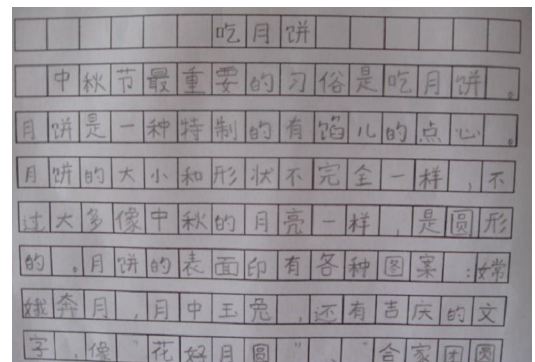 吃月饼
中秋节最重要的习俗是吃月饼。
月饼是一种特制的有馅儿的点心。
月饼的大小和形状不完全一样,不
过大多像中秋的月亮一样,是圆形
的。月饼的表面印有各种图案:嫦
娥奔月,月中玉兔,还有吉庆的文
字,像“花好月圆”、“合家团圆